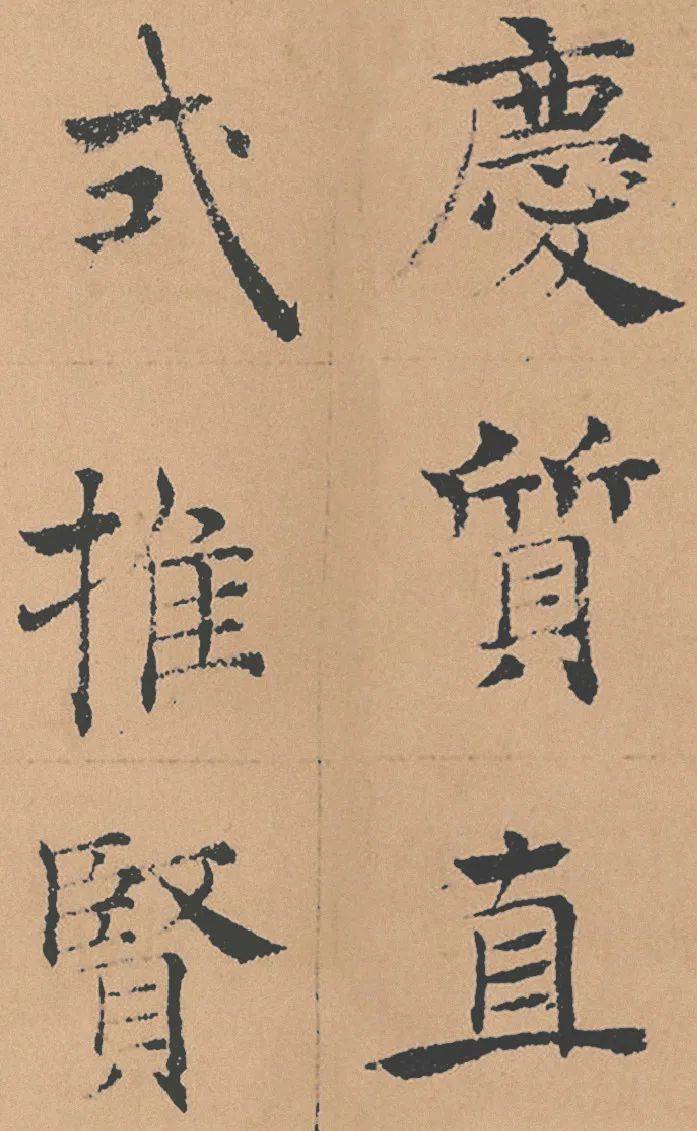 慶質直
式推賢